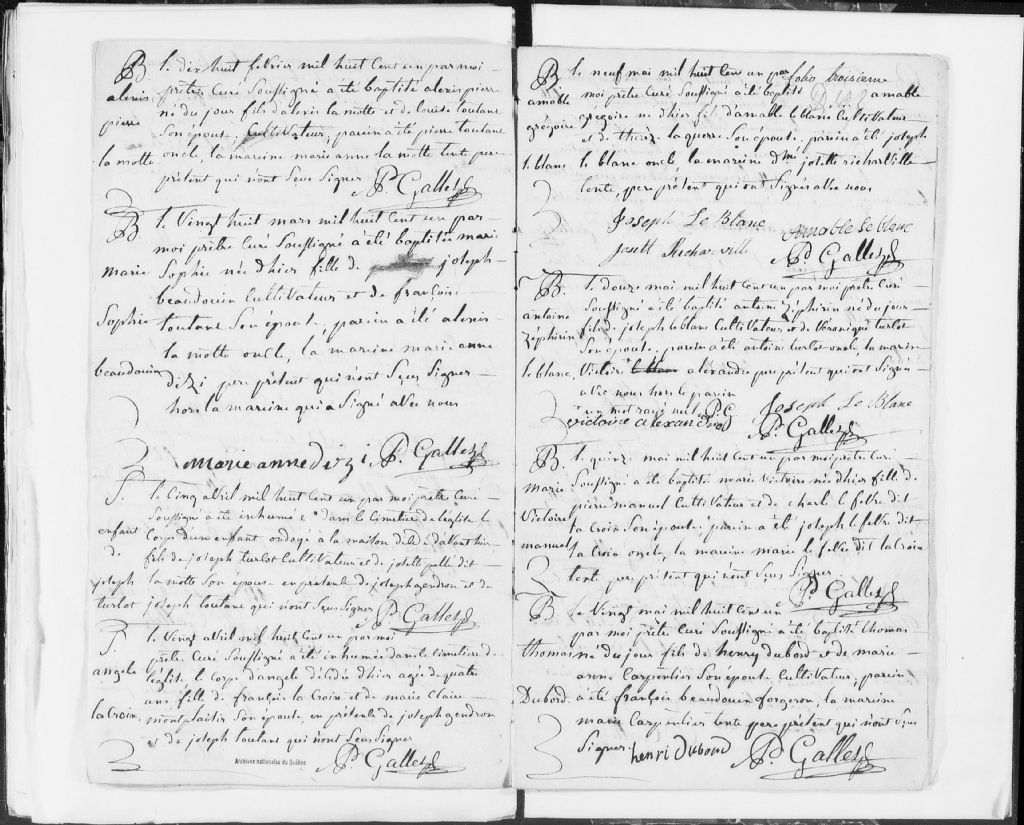 B le dix huit fevrier mil huit Cent un par moi
alexis prêtre Curé Soussigné a été baptisé alexis pierre
né du jour fils d'alexis la motte et de louise toutant
pierre Son épouse, Cultivateur, parein a été pierre toutant
la motte oncle, la mareine marie anne la motte tente, pere
présent qui n'ont Sçus Signer P. Gallet
B le Vingt huit mars mil huit Cent un par
moi prêtre Curé Soussigné a été baptisée marie
marie Sophie née d'hier fille de joseph
beaudouin Cultivateur et de françoise
Sophie toutant Son épouse, parein a été alexis
la motte oncle, la mareine marie anne
beaudouin dizi pere présent qui n'ont Sçus Signer
hors la mareine qui a Signé avec nous
marie anne dizi P. Gallet
S. le Cinq avril mil huit Cent un par moi prêtre Curé
Soussigné a été inhumé dans le Cimetiere de l'eglise le
enfant Corps d'un enfant ondoyé a la maison décédé d'avant hier
de fils de joseph turlot Cultivateur et de josette pelle dit
joseph la motte Son épouse en présence de joseph gendron et de
turlot joseph toutant qui n'ont Sçus Signer P. Gallet
S. le Vingt avril mil huit Cent un par moi
prêtre Curé Soussigné a été inhumée dans le Cimetiere de
angele l'eglise le corps d'angele décédée d'hier agée de quatre
ans, fille de françois la Croix et de marie Claire
la croix montplaisir Son épouse, en présence de joseph gendron
et de joseph toutant qui n'ont Sçus Signer
P. Gallet
Archives nationales du Québec
folio troisieme
B le neuf mai mil huit Cens un par
amable moi prêtre Curé Soussigné a été baptisé amable
grégoire gregoire né d'hier fils d'amable le blanc Cultivateur
et de therese la guerre Son épouse, parein a été joseph
le blanc le blanc oncle la mareine dme josette richarville
tente, pere présent qui ont Signés avec nous
Joseph Le Blanc amable le blanc
josett Richarville P. Gallet
B. le douze mai mil huit Cent un par moi prêtre Curé
antoine Soussigné a été baptisé antoine Zéphirin né du jour
Zéphirin fils de joseph le blanc Cultivateur et de Véronique turlot
Son épouse, parein a été antoine turlot oncle, la marein
le blanc, Victoire le blanc alexandre pere présent qui ont Signés
avec nous hors le parein
un mot rayé nul P.G Joseph Le Blanc
victoire alexandre P. Gallet
B. le quinze mai mil huit Cent un par moi prêtre Curé
marie Soussigné a été baptisée marie Victoire née d'hier fille de
pierre manuel Cultivateur et de charl. le febre dit
Victoire la Croix Son épouse, parein a été joseph le febre dit
manuel la Croix oncle, la mareine marie le febre dit la Croix
tente, pere présent qui n'ont Sçus Signer
P. Gallet
B le Vingt mai mil huit Cens un
par moi prêtre Curé Soussigné a été baptisé thomas
thomas né du jour fils de henry dubord et de marie
anne Carpentier Son épouse Cultivateur, parein
Dubord. a été françois beaudouin forgeron, la mareine
marie Carpentier tente pere présent qui n'ont Sçus
Signer. henri Dubord P. Gallet